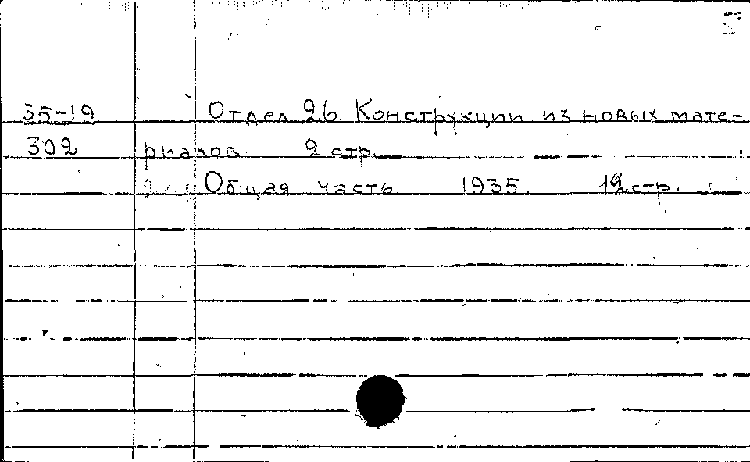 35-19 Отдел 26 Конструкции из новых мате-
302 риалов 2 стр.
Общая часть 1935. 12 стр.